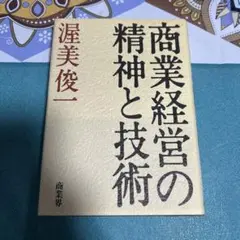 商業経営の
精神と技術
渥美俊一
商業界